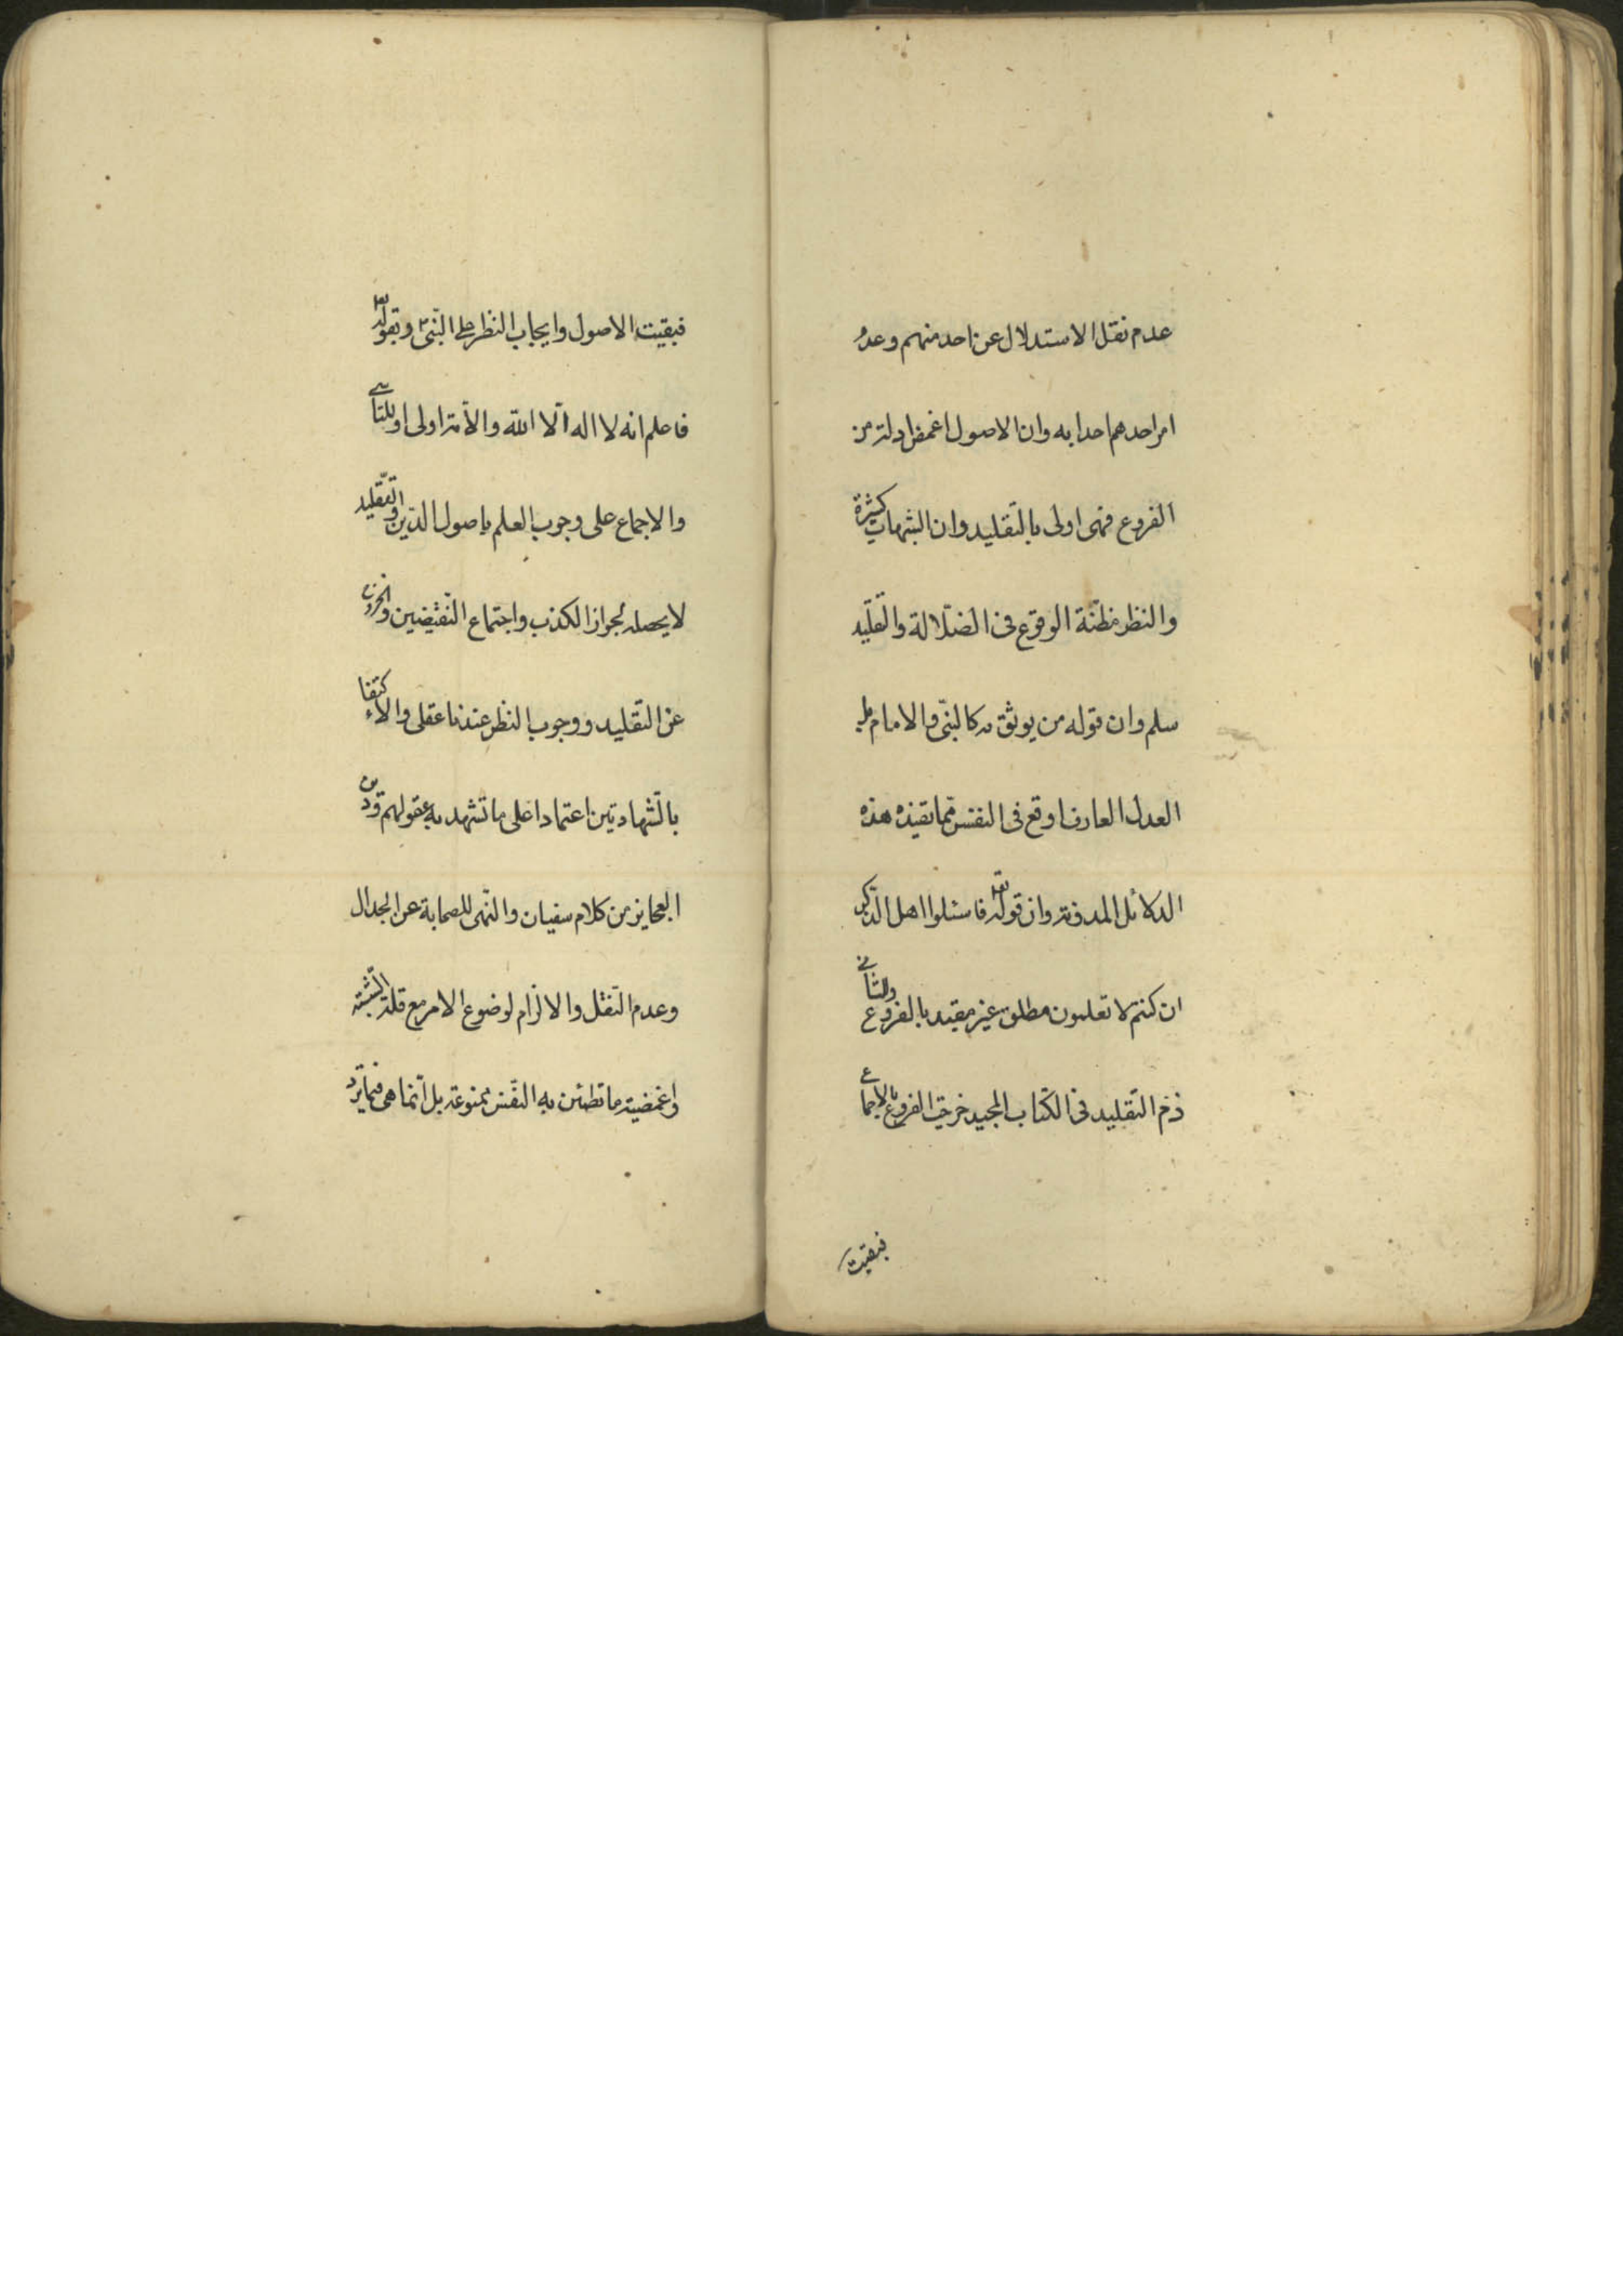 عدم نقل الاستدلال عن احد منهم وعدم
امر احدهم احدا به وان الاصول اغمض ادلة من
الفروع فهى اولى بالتّقليد وان الشبهات كثيرة
والنظر مظنّة الوقوع فى الضّلالة والتّقليد
سلم وان قوله من يوثق به كالنبىّ والامام بل
العدل العارف اوقع فى النفس ممّا تفيده هذه
الدلائل المدوّنة وان قوله تعا فاسئلوا اهل الذّكر
ان كنتم لا تعلمون مطلق غير مقيد بالفروع وللثانى
ذمّ التّقليد فى الكتاب المجيد خرجت الفروع بالاجماع
فبقيت
فبقيت الاصول وايجاب النظر على النّبىّ وبقوله تعا
فاعلم انه لا اله الّا اللّه والامّة اولى او للتاسى
والاجماع على وجوب العلم باصول الدّين والتّقليد
لا يحصله لجواز الكذب واجتماع النّقيضين والخروج
عن التّقليد ووجوب النظر عندنا عقلى والاكتفاء
بالشّهادتين اعتمادا على ما تشهد به عقولهم ودين
العجايز من كلام سفيان والنّهى للصحابة عن الجدال
وعدم النّقل والالزام لوضوح الامر مع قلة الشّبهة
واغمضية ما تطمئن به النّفس ممنوعة بل انّما هى فيما تردّ